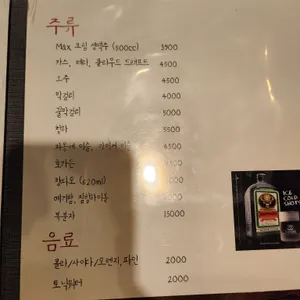 주류
Max 크림 생맥주 (500cc) 3900
카스, 테라, 클라우드 드래프트 4500
소주 4500
막걸리 4000
꿀막걸리 5000
청하 5500
4500
호가든
칭다오 (620ml)
예거밤,
복분자 15000
음료
콜라/사이다/오렌지,파인 2000
토닉워터 2000
ICE COLD SHOTS